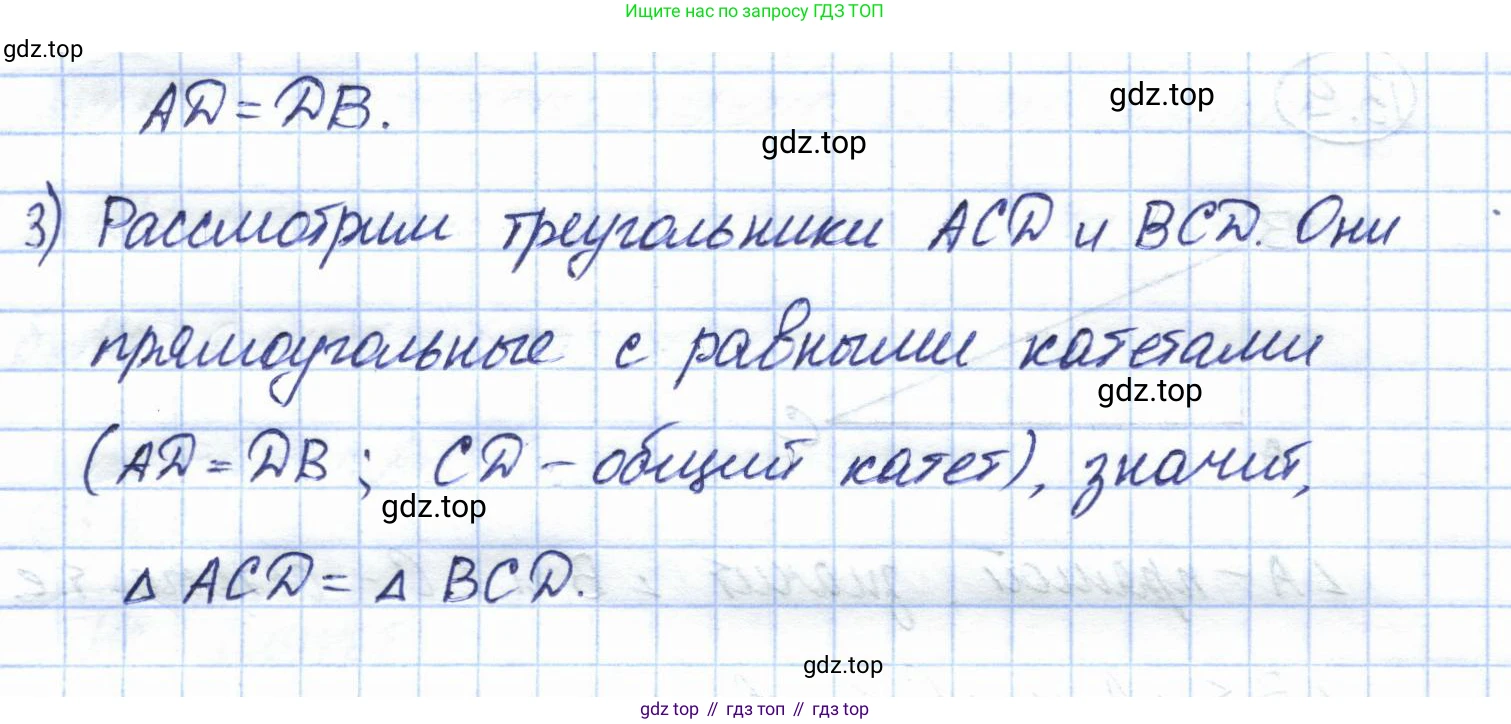 Ищите нас по запросу ГДЗ ТОП
gdz.top
AD = DB.
gdz.top
gdz.top
3) Рассмотрим треугольники ACD и BCD. Они
прямоугольные с равными катетами
gdz.top
(AD = DB; CD – общий катет), значит,
gdz.top
Δ ACD = Δ BCD.
gdz.top
gdz top // гдз топ // гдз top